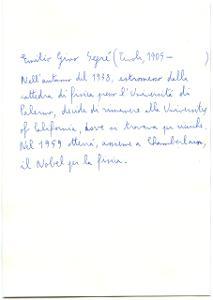 Emilio Gino Segré (Tivoli, 1905 –       )
Nell'autunno del 1938, estromesso dalla
cattedra di fisica presso l'Università di
Palermo, decide di rimanere alla University
of California, dove si trovava per
Nel 1959 otterrà, assieme a Chamberlain,
il Nobel per la fisica.